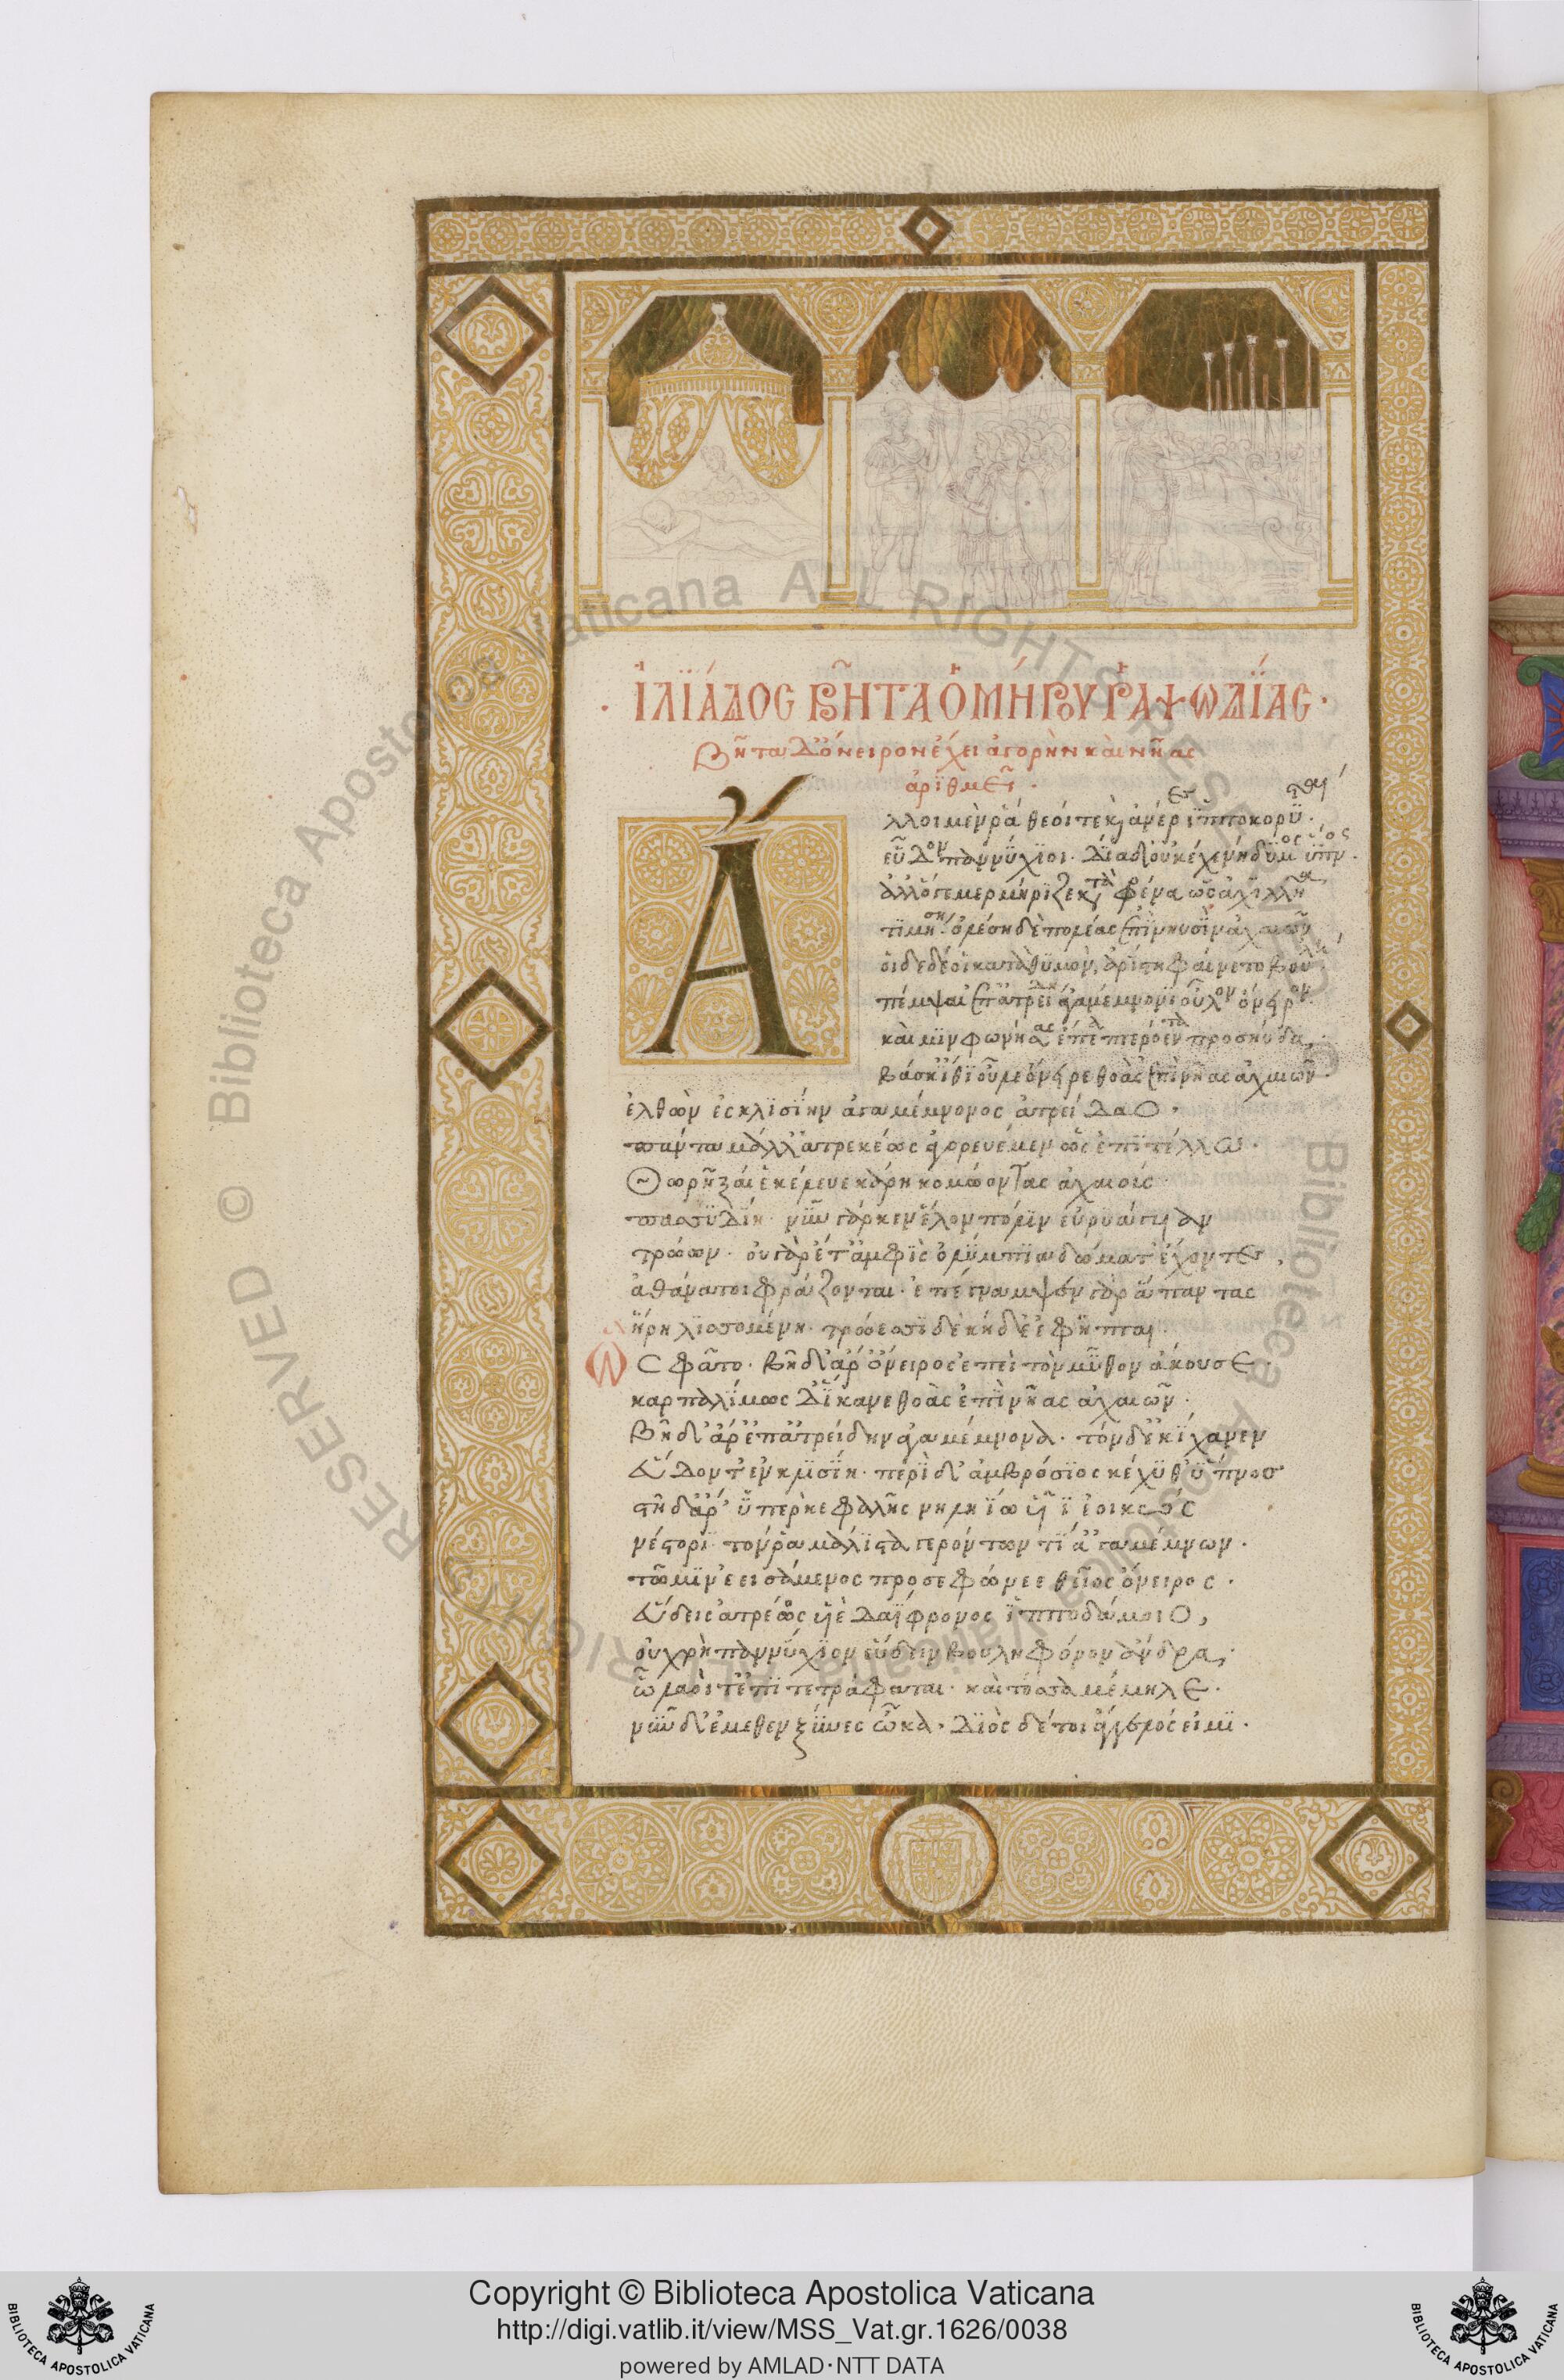 · ἸΛΪΆΔΟΣ ΒΗ͂ΤΑ ὉΜΉΡΟΥ ῬΑΨΩΔΪ́ΑΣ ·
Βῆτα δ' ὄνειρον ἔχει ἀγορὴν καὶ νῆας
ἀρϊθμεῖ ·
Ἄλλοι μὲν ῥὰ θεοί τε καὶ ἀνέρες ἱπποκορϋσταὶ
εὗδον παννύχϊοι · Δία δ' οὐκ ἔχε νήδϋμος ὕπνος ·
ἀλλ' ὅγε μερμήρϊζε κατὰ φρένα ὡς ἀχϊλλῆα
τϊμήσῃ, ὀλέσῃ δὲ πολέας ἐπὶ νηυσὶν ἀχαιῶν
ὅιδε δέ οἱ κατὰ θϋμὸν, ἀρίστη φαίνετο βουλὴ
πέμψαι ἐπ' ἀτρείδῃ ἀγαμέμνονι οὖλον ὄνειρον
καὶ μϊν φωνήσας ἔπεα πτερόεντα προσηύδα,
βάσκ' ἴθϊ οὖλε ὄνειρε θοὰς ἐπὶ νῆας ἀχαιῶν ·
ἐλθὼν ἐς κλϊσΐην ἀγαμέμνονος ἀτρείδαο,
πάντα μάλ' ἀτρεκέως ἀγορευέμεν ὡς ἐπϊτέλλω ·
Θωρῆξαί ἑ κέλευε κάρη κομόωντας ἀχαιοὺς
πασσϋδΐῃ · νῦν γάρ κεν ἕλοι πόλϊν εὐρϋάγυιαν
τρώων · οὐ γὰρ ἔτ' ἀμφὶς ὀλύμπϊα δώματ' ἔχοντες,
ἀθάνατοι φράζονται · ἐπέγναμψεν γὰρ ἅπαντας
ἥρη λϊσσομένη · τρώεσσϊ δὲ κήδε' ἐφῆπται
Ὣς φάτο · βῆ δ' ἄρ' ὄνειρος ἐπεὶ τὸν μῦθον ἄκουσε ·
καρπαλίμως δ' ἵκανε θοὰς ἐπὶ νῆας ἀχαιῶν ·
βῆ δ' ἄρ' ἐπ' ἀτρείδην ἀγαμέμνονα · τὸν δ' ἐκίχανεν
εὕδοντ' ἐν κλϊσΐῃ · περὶ δ' ἀμβρόσϊος κέχϋθ' ὕπνος
στῆ δ' ἄρ' ὑπὲρ κεφαλῆς νηληΐω υἷϊ ἐοικὼς
νέστορϊ · τόν ῥα μάλϊστα γερόντων τϊ' ἀγαμέμνων ·
τῷ μϊν ἐεισάμενος προσεφώνεε θεῖος ὄνειρος ·
εὕδεις ἀτρέως υἱὲ δαΐφρονος ἱπποδάμοιο,
οὐ χρὴ παννύχϊον εὕδειν βουληφόρον ἄνδρα,
ᾧ λαοί τ' ἐπϊτετράφαται · καὶ τόσσα μέμηλε ·
νῦν δ' ἐμέθεν ξύνες ὦκα · Δϊὸς δέ τοι ἄγγελός εἰμϊ ·
Copyright © Biblioteca Apostolica Vaticana
http://digi.vatlib.it/view/MSS_Vat.gr.1626/0038
powered by AMLAD·NTT DATA
BIBLIOTECA APOSTOLICA VATICANA
BIBLIOTECA APOSTOLICA VATICANA